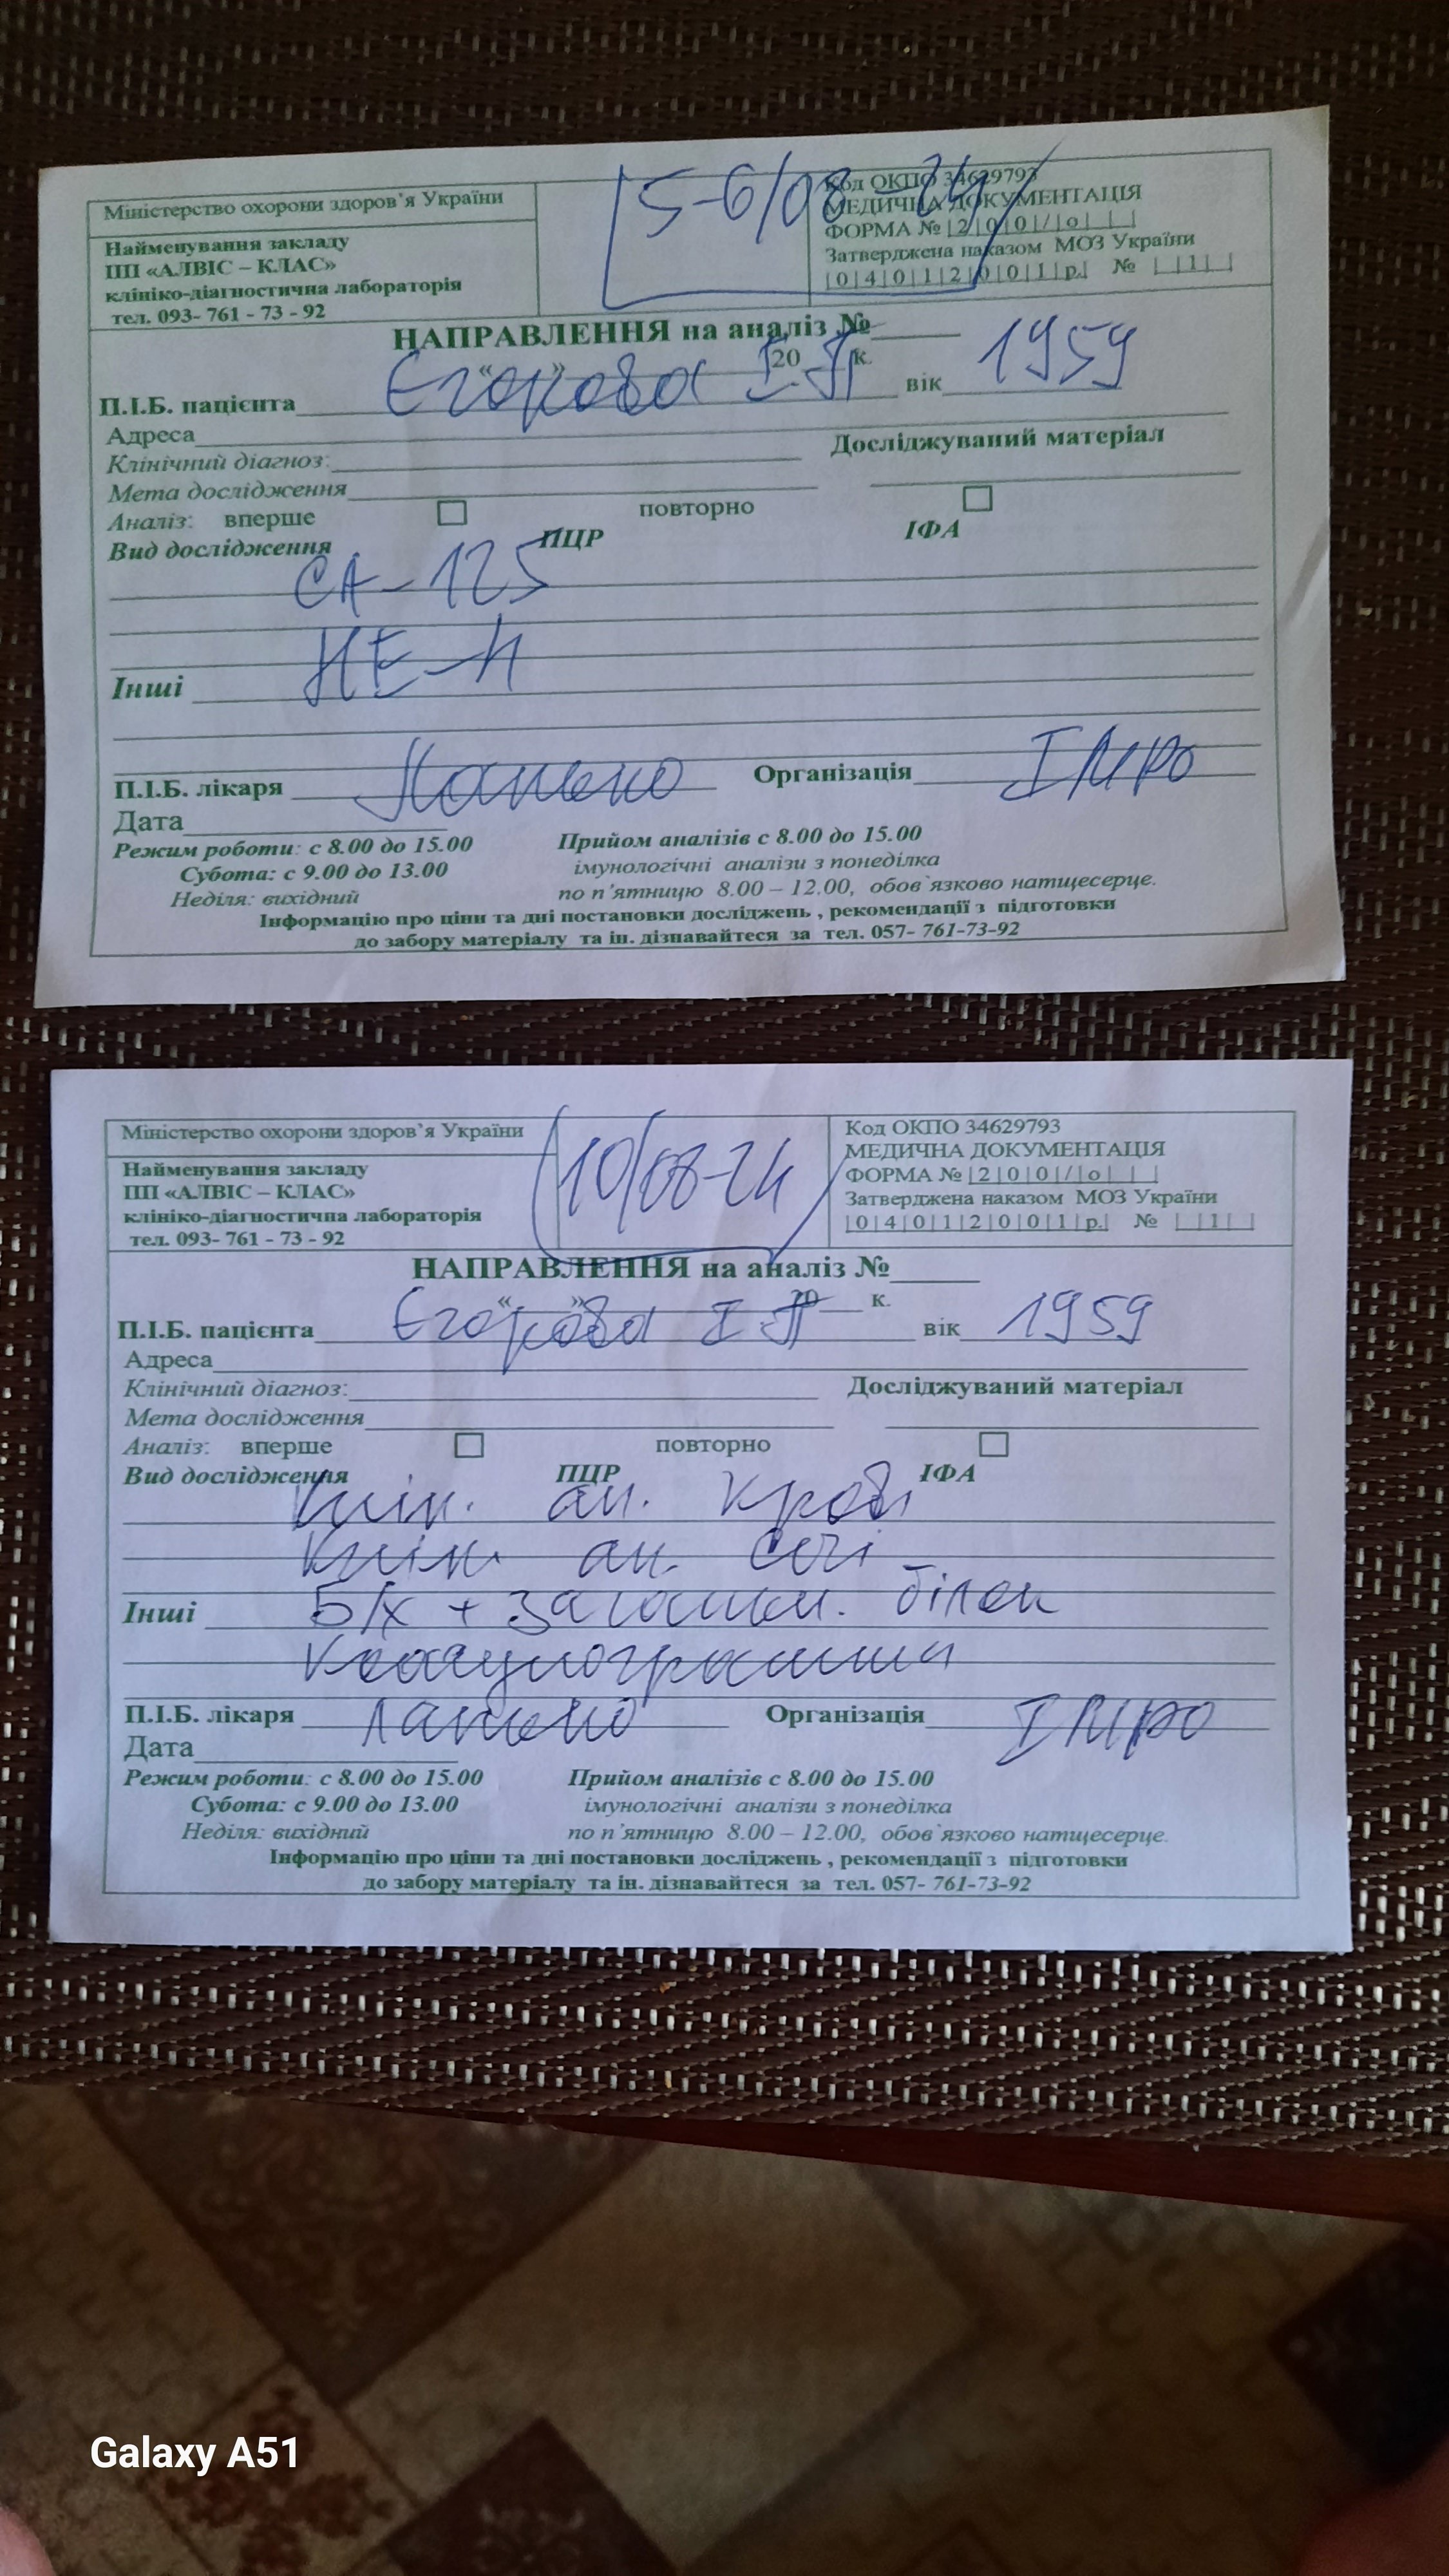 Міністерство охорони здоров'я України
5-6/08-24
Код ОКПО 34629793
МЕДИЧНА ДОКУМЕНТАЦІЯ
ФОРМА № |2|0|0|/|о| | |
Затверджена наказом МОЗ України
|0|4|0|1|2|0|0|1|р.| № | |1| |
Найменування закладу
ПП «АЛВІС – КЛАС»
клініко-діагностична лабораторія
тел. 093- 761 - 73 - 92
НАПРАВЛЕННЯ на аналіз №
« » 20 к.
П.І.Б. пацієнта Єгорова І П вік 1959
Адреса
Клінічний діагноз: Досліджуваний матеріал
Мета дослідження
Аналіз: вперше повторно
Вид дослідження ПЦР ІФА
СА-125
НЕ-4
Інші
П.І.Б. лікаря Організація ІМРО
Дата
Режим роботи: с 8.00 до 15.00 Прийом аналізів с 8.00 до 15.00
Субота: с 9.00 до 13.00 імунологічні аналізи з понеділка
Неділя: вихідний по п'ятницю 8.00 – 12.00, обов`язково натщесерце.
Інформацію про ціни та дні постановки досліджень , рекомендації з підготовки
до забору матеріалу та ін. дізнавайтеся за тел. 057- 761-73-92
Міністерство охорони здоров'я України
10/08-24
Код ОКПО 34629793
МЕДИЧНА ДОКУМЕНТАЦІЯ
ФОРМА № |2|0|0|/|о| | |
Затверджена наказом МОЗ України
|0|4|0|1|2|0|0|1|р.| № | |1| |
Найменування закладу
ПП «АЛВІС – КЛАС»
клініко-діагностична лабораторія
тел. 093- 761 - 73 - 92
НАПРАВЛЕННЯ на аналіз №
« » 20 к.
П.І.Б. пацієнта Єгорова І П вік 1959
Адреса
Клінічний діагноз: Досліджуваний матеріал
Мета дослідження
Аналіз: вперше повторно
Вид дослідження ПЦР ІФА
Клін. ан. крові
Клін. ан. сечі
Інші Б/х + загальн. білок
Коагулограмма
П.І.Б. лікаря Організація ІМРО
Дата
Режим роботи: с 8.00 до 15.00 Прийом аналізів с 8.00 до 15.00
Субота: с 9.00 до 13.00 імунологічні аналізи з понеділка
Неділя: вихідний по п'ятницю 8.00 – 12.00, обов`язково натщесерце.
Інформацію про ціни та дні постановки досліджень , рекомендації з підготовки
до забору матеріалу та ін. дізнавайтеся за тел. 057- 761-73-92
Galaxy A51